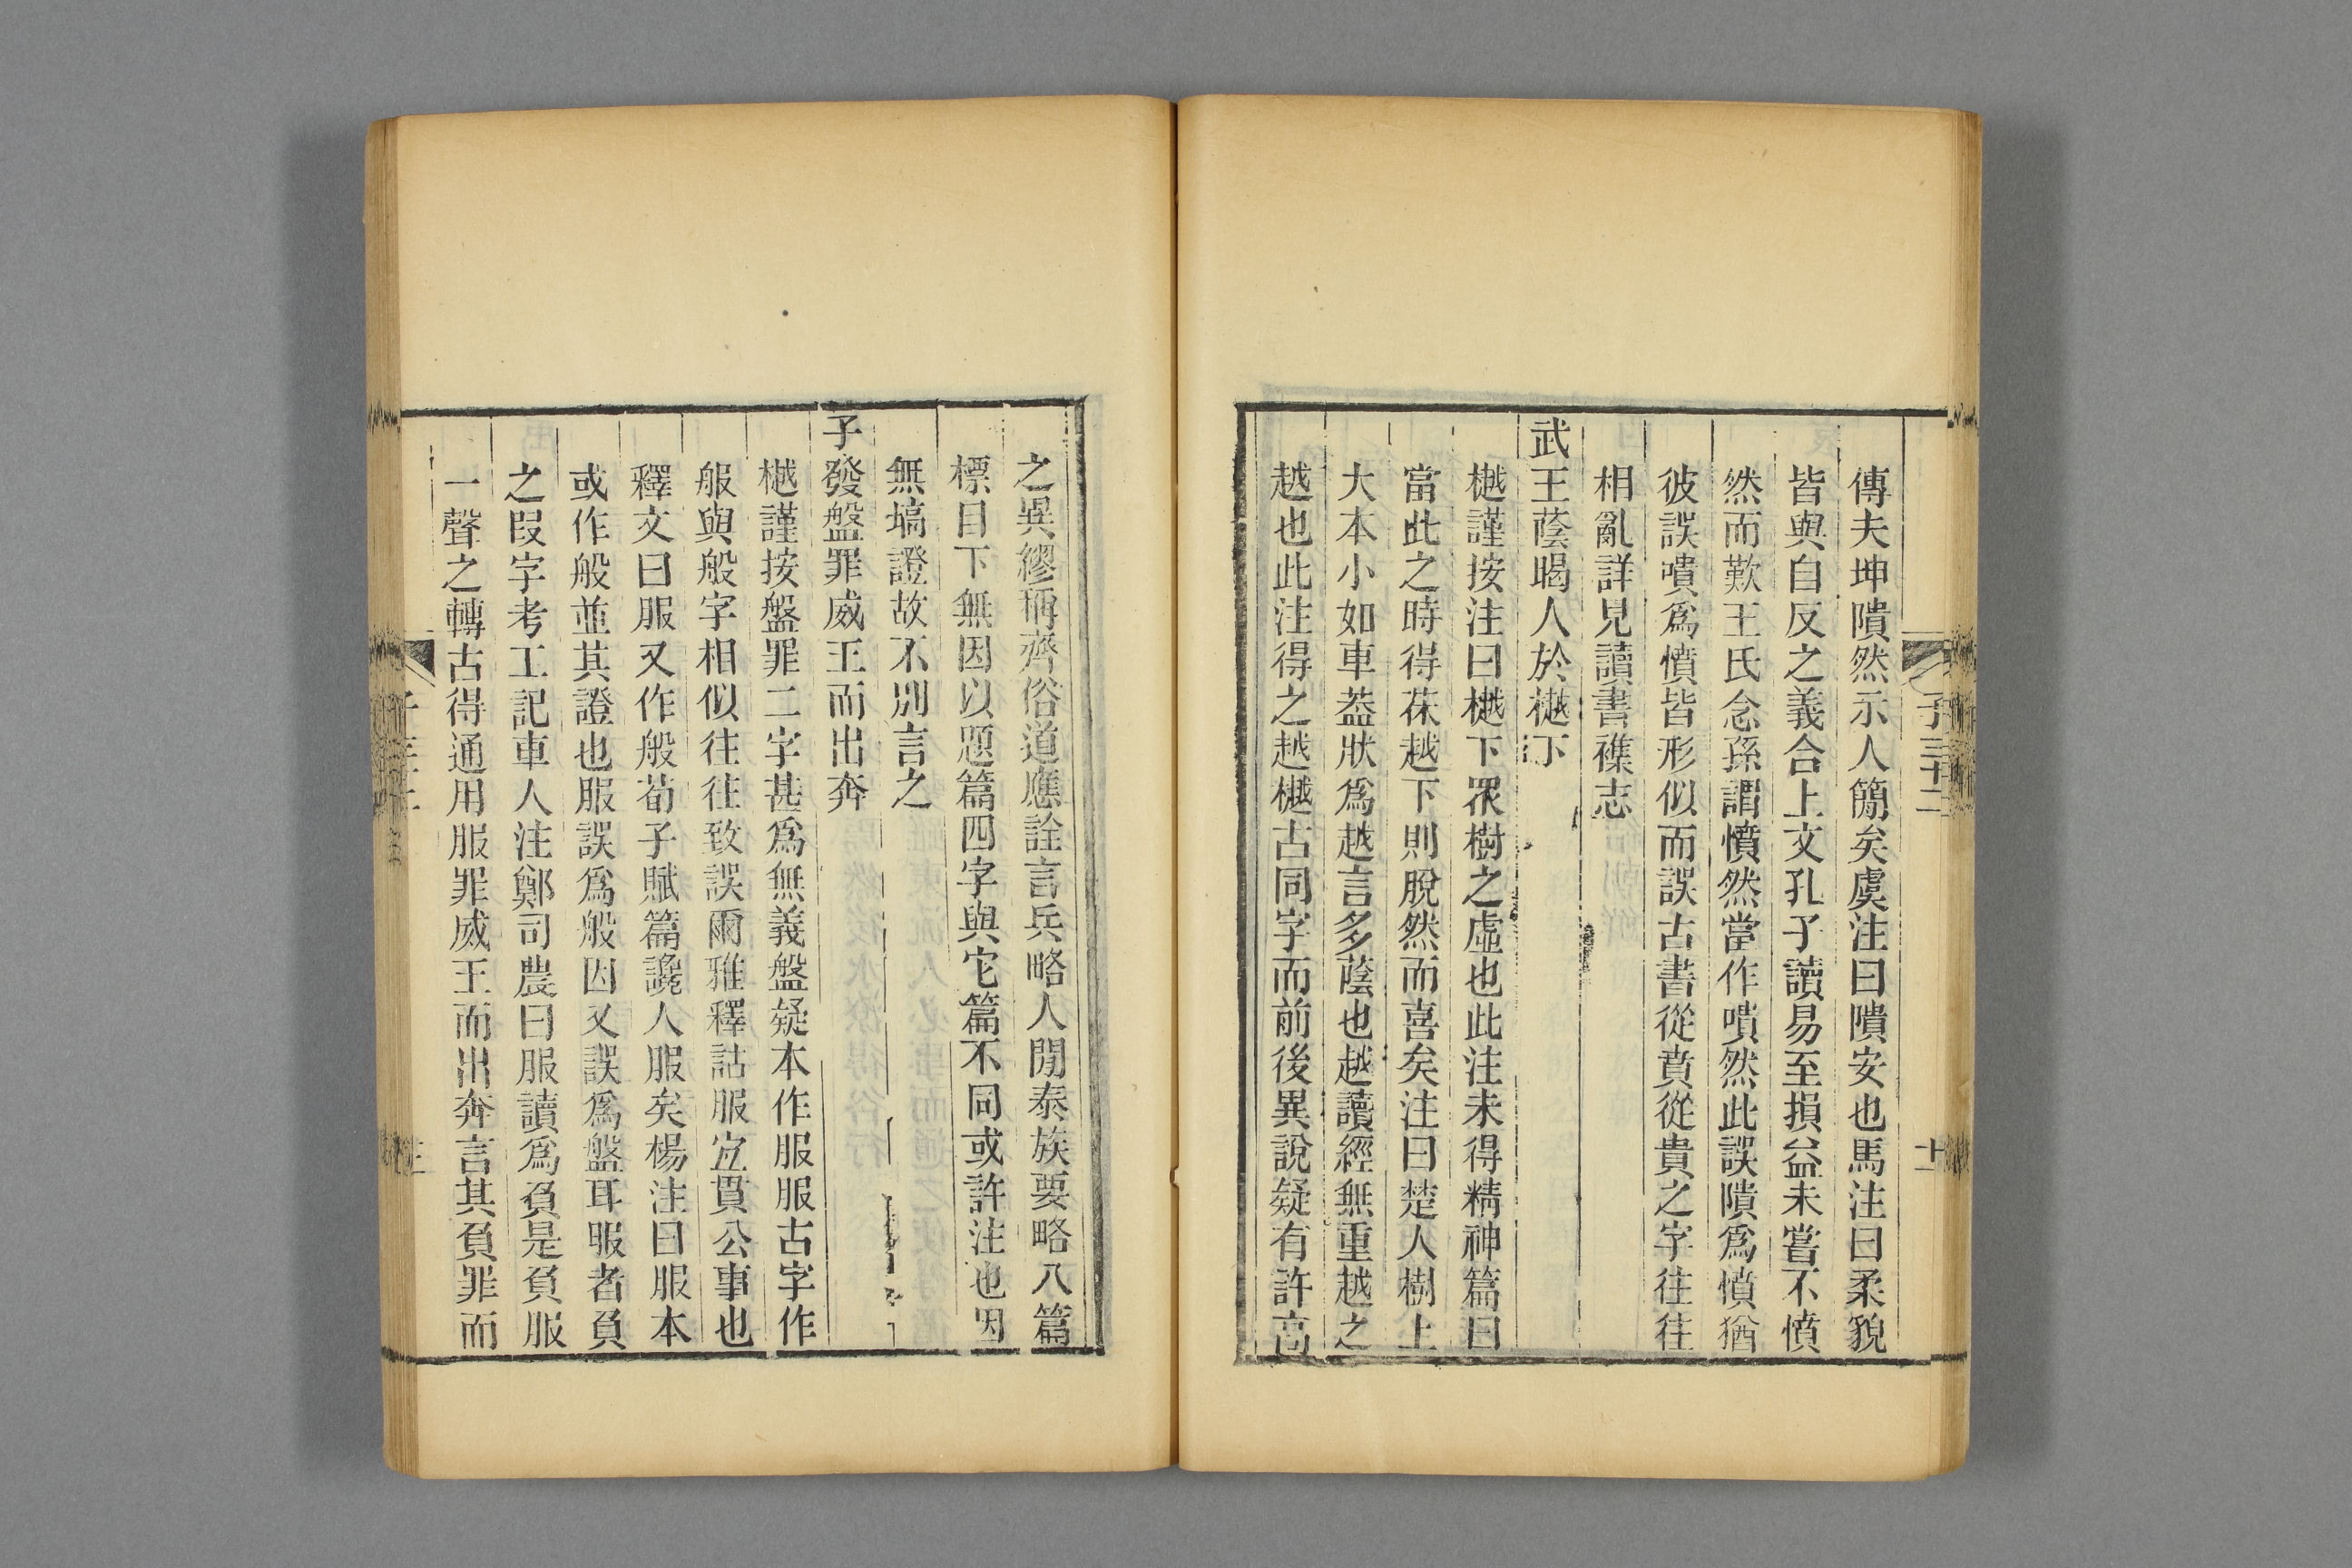 傳夫坤隤然示人簡矣虞注曰隤安也馬注曰柔貌
皆與自反之義合上文孔子讀易至損益未嘗不憤
然而歎王氏念孫謂憤然當作嘳然此誤隤爲憤猶
彼誤嘳爲憤皆形似而誤古書從賁從貴之字往往
相亂詳見讀書襍志
武王蔭暍人於樾下
樾謹按注曰樾下眾樹之虛也此注未得精神篇曰
當此之時得茠越下則脫然而喜矣注曰楚人樹上
大本小如車蓋狀爲越言多蔭也越讀經無重越之
越也此注得之越樾古同字而前後異說疑有許高
之異繆稱齊俗道應詮言兵略人閒泰族要略八篇
標目下無因以題篇四字與它篇不同或許注也因
無塙證故不別言之
子發盤罪威王而出奔
樾謹按盤罪二字甚爲無義盤疑本作服服古字作
𦨕與般字相似往往致誤爾雅釋詁服宜貫公事也
釋文曰服又作般荀子賦篇讒人服矣楊注曰服本
或作般並其證也服誤爲般因又誤爲盤耳服者負
之叚字考工記車人注鄭司農曰服讀爲負是負服
一聲之轉古得通用服罪威王而出奔言其負罪而
子三十二
十一